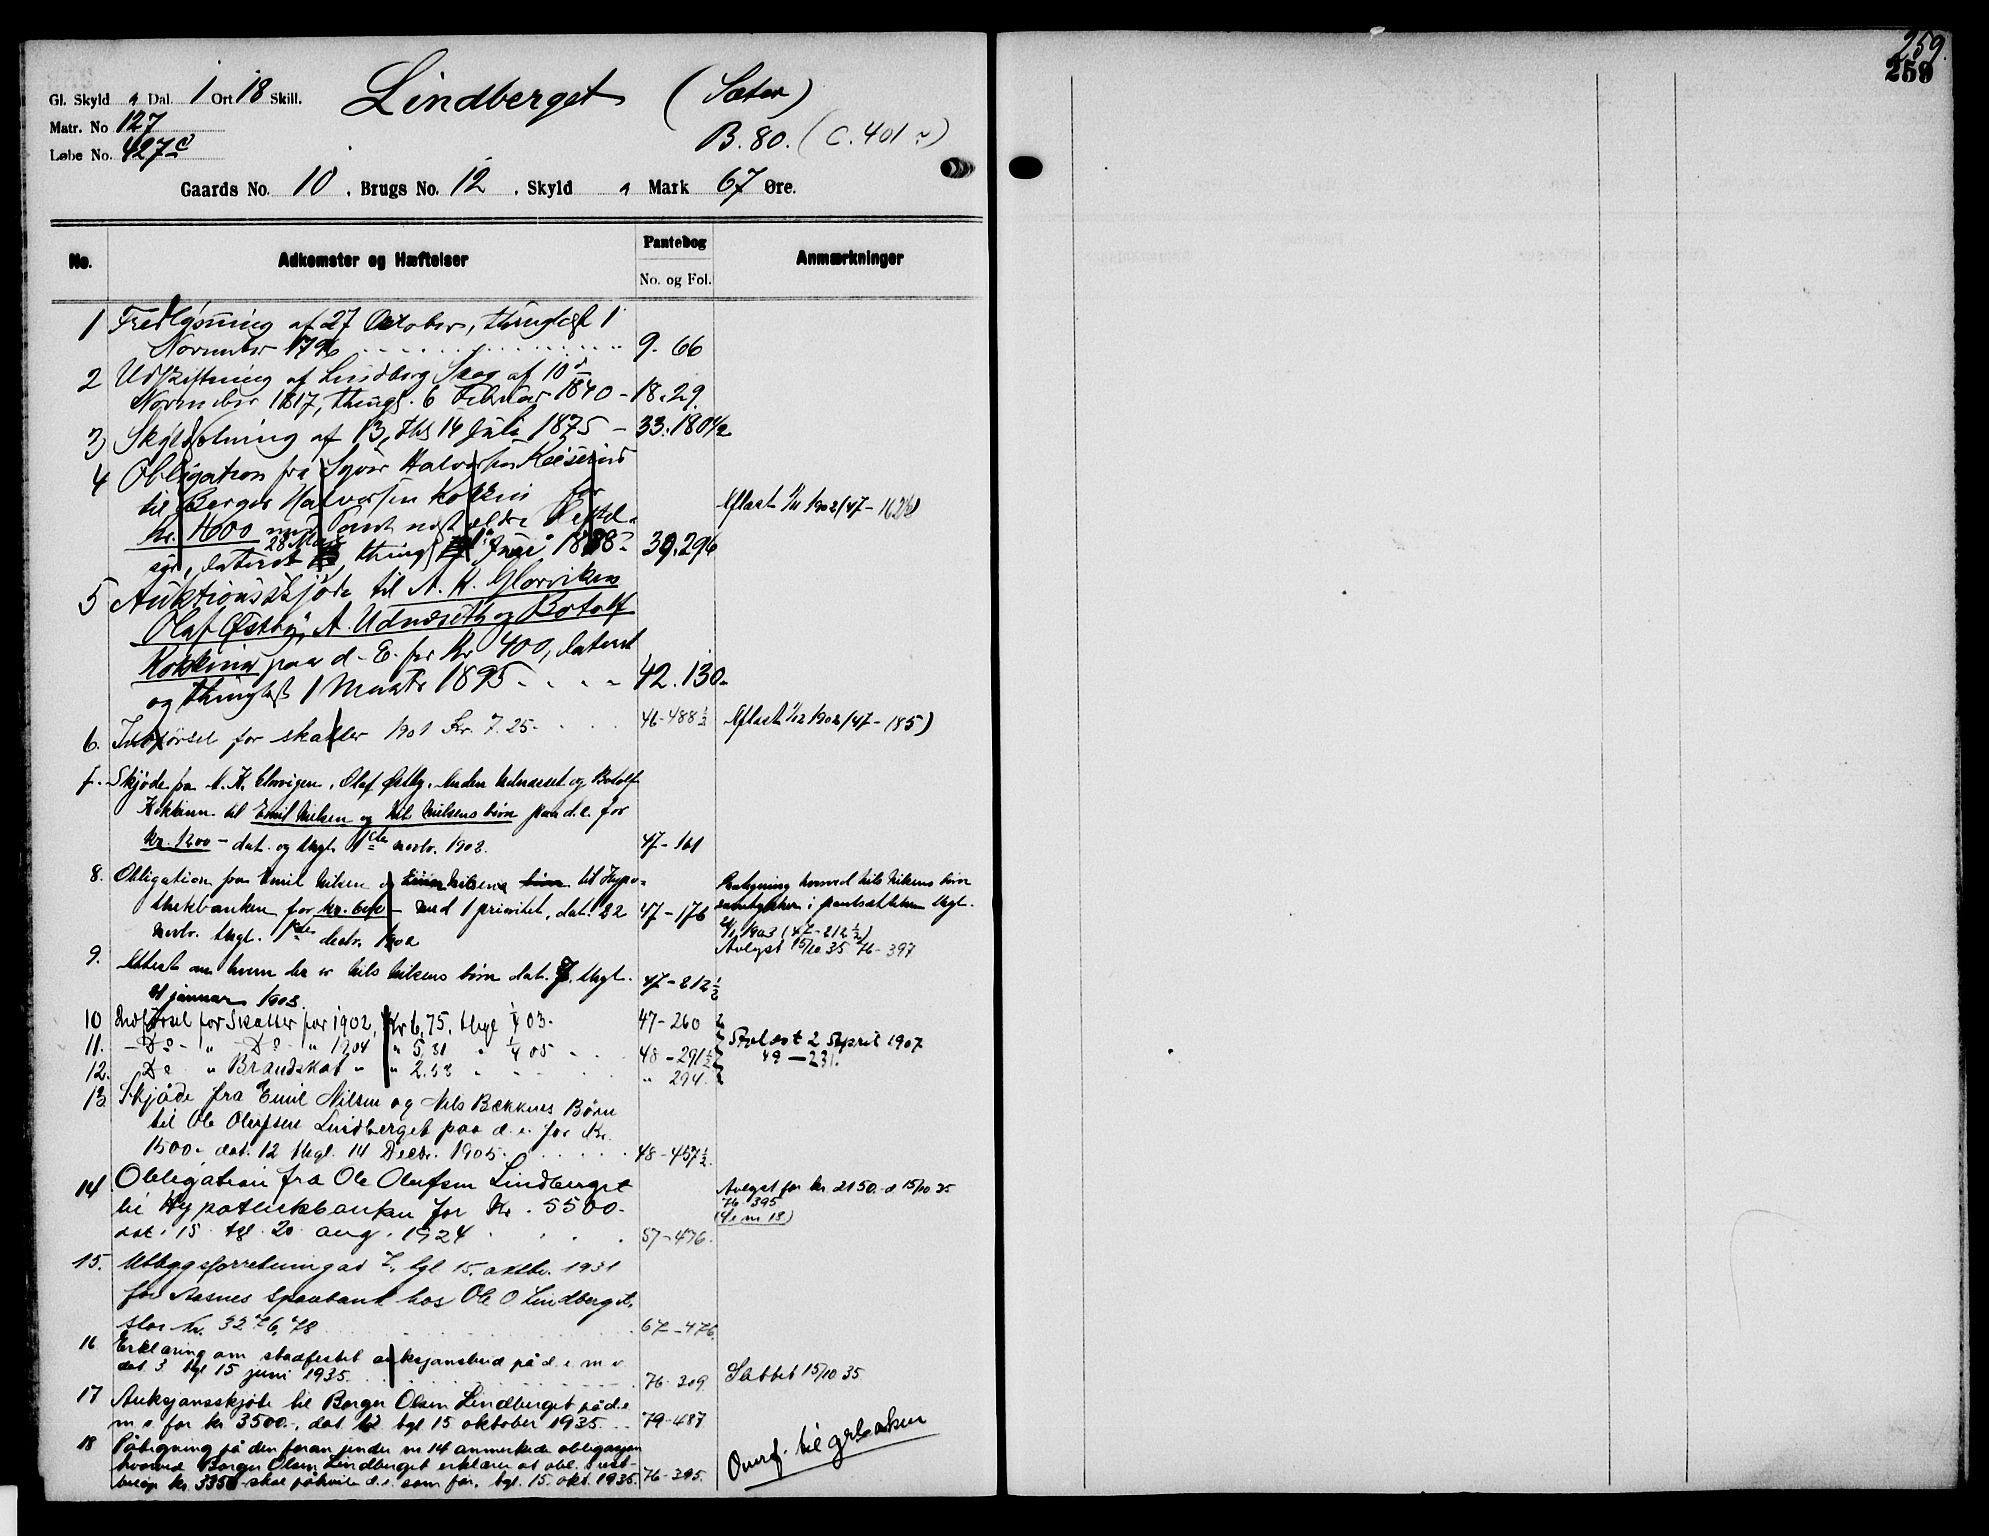 259.
259
Gl. Skyld " Dal. 1 Ort 18 Skill.
Lindberget (Sæter)
Matr. No 127
B. 80. (C. 401
Løbe No. 427c
Gaards No. 10 . Brugs No. 12 . Skyld " Mark 67 Øre.
No. Adkomster og Hæftelser Pantebog No. og Fol. Anmærkninger
1 Fredlysning af 27 October, thinglyst 1
November 1796 9. 66
2 Udskiftning af Lindberg Skog af 10d
November 1817, thingl. 6 Februar 1840 - 18.29.
3 Skyldsetning af 13, thl 14 Juli 1875 - 33.180 1/2
4 Obligation fra Syver Halvorsen
til Berger Halvorsen Kokkin for
kr. 1600 med Pant næst ældre Heftel-
ser, dateret 28 Mai, thingl. Juni 1888 39.296
Aflæst 1/11 1902 (47-162
5 Auktionsskjøde til A. K. Glorviken
Olaf Østby, A. Udnæseth og Botolf
Kokkin paa d. E. for Kr 400, dateret
og thinglyst 1 Marts 1895 42.130
6. Indførsel for skatter 1901 Kr. 7.25. 46-488 1/2 Aflæst 1/12 1902 (47-185)
7. Skjøde fra A. K. Glorvigen, Olaf Østby, Anders Udnæset og Botolf
Kokkinn til Emil Nilsen og Nils Nilsens børn paa d.e. for
kr. 1200 - dat. og thgl. 1ste novbr. 1902. 47-161
8. Obligation fra Emil Nilsen og Nilsens børn til Hypo-
thekbanken for kr. med 1 prioritet, dat. 22 47-176
novbr. thgl. 1ste decbr. 1902
Paategning hvorved Nils Nilsens børn
samtykker i pantsættelsen thgl.
21/1 1903 (47-212 1/2)
Avlyst 15/10 35 76-397
9. Attest om hvem der er Nils Nilsens børn dat. 7. thgl. 47-212 1/2
21 januar 1903.
10 Indførsel for Skatter for 1902, Kr 6,75. thgl 1/4 03. 47-260
11. - Do - " - Do - " 1904 " 5,31 " 1/4 05 48-291 1/2
12. Do " Brandskat " " 2.53 " " 294.
Avlæst 2 April 1907
49-231.
13 Skjøde fra Emil Nilsen og Nils Bekkens Børn
til Ole Olufsen Lindberget paa d.e. for Kr.
1500.- dat. 12 thgl. 14 Decbr. 1905. 48-457 1/2
14 Obligation fra Ole Olufsen Lindberget
til Hypotekbanken for Kr. 5500.-
dat. 15. tgl. 20. aug. 1924 57-476.
Avlyst for kr. 2150.- d. 15/10 35
76-395
(Se nr 18)
15. Utlegsforretning av 7. tgl 15. oktbr. 1931
for Aasnes Sparebank hos Ole O Lindberget,
stor kr. 3276,78 67-476.
16 Erklæring om stadfestet auksjonsbud på d.e. m.v.
dat 3 tgl 15 juni 1935. 76-309 Slettet 15/10 35
17 Auksjonsskjøte til Borger Olsen Lindberget på d.e
m.v. for kr 3500.-, dat. 12 tgl 15 oktober 1935. 79-487
18 Påtegning på den foran under nr 14 anmerkede obligasjon
hvorved Borger Olsen Lindberget erklærer at obl. rest-
beløp kr. 3350 skal påhvile d.e. som før, tgl. 15. okt. 1935. 76-395.
Overf. til grbboken